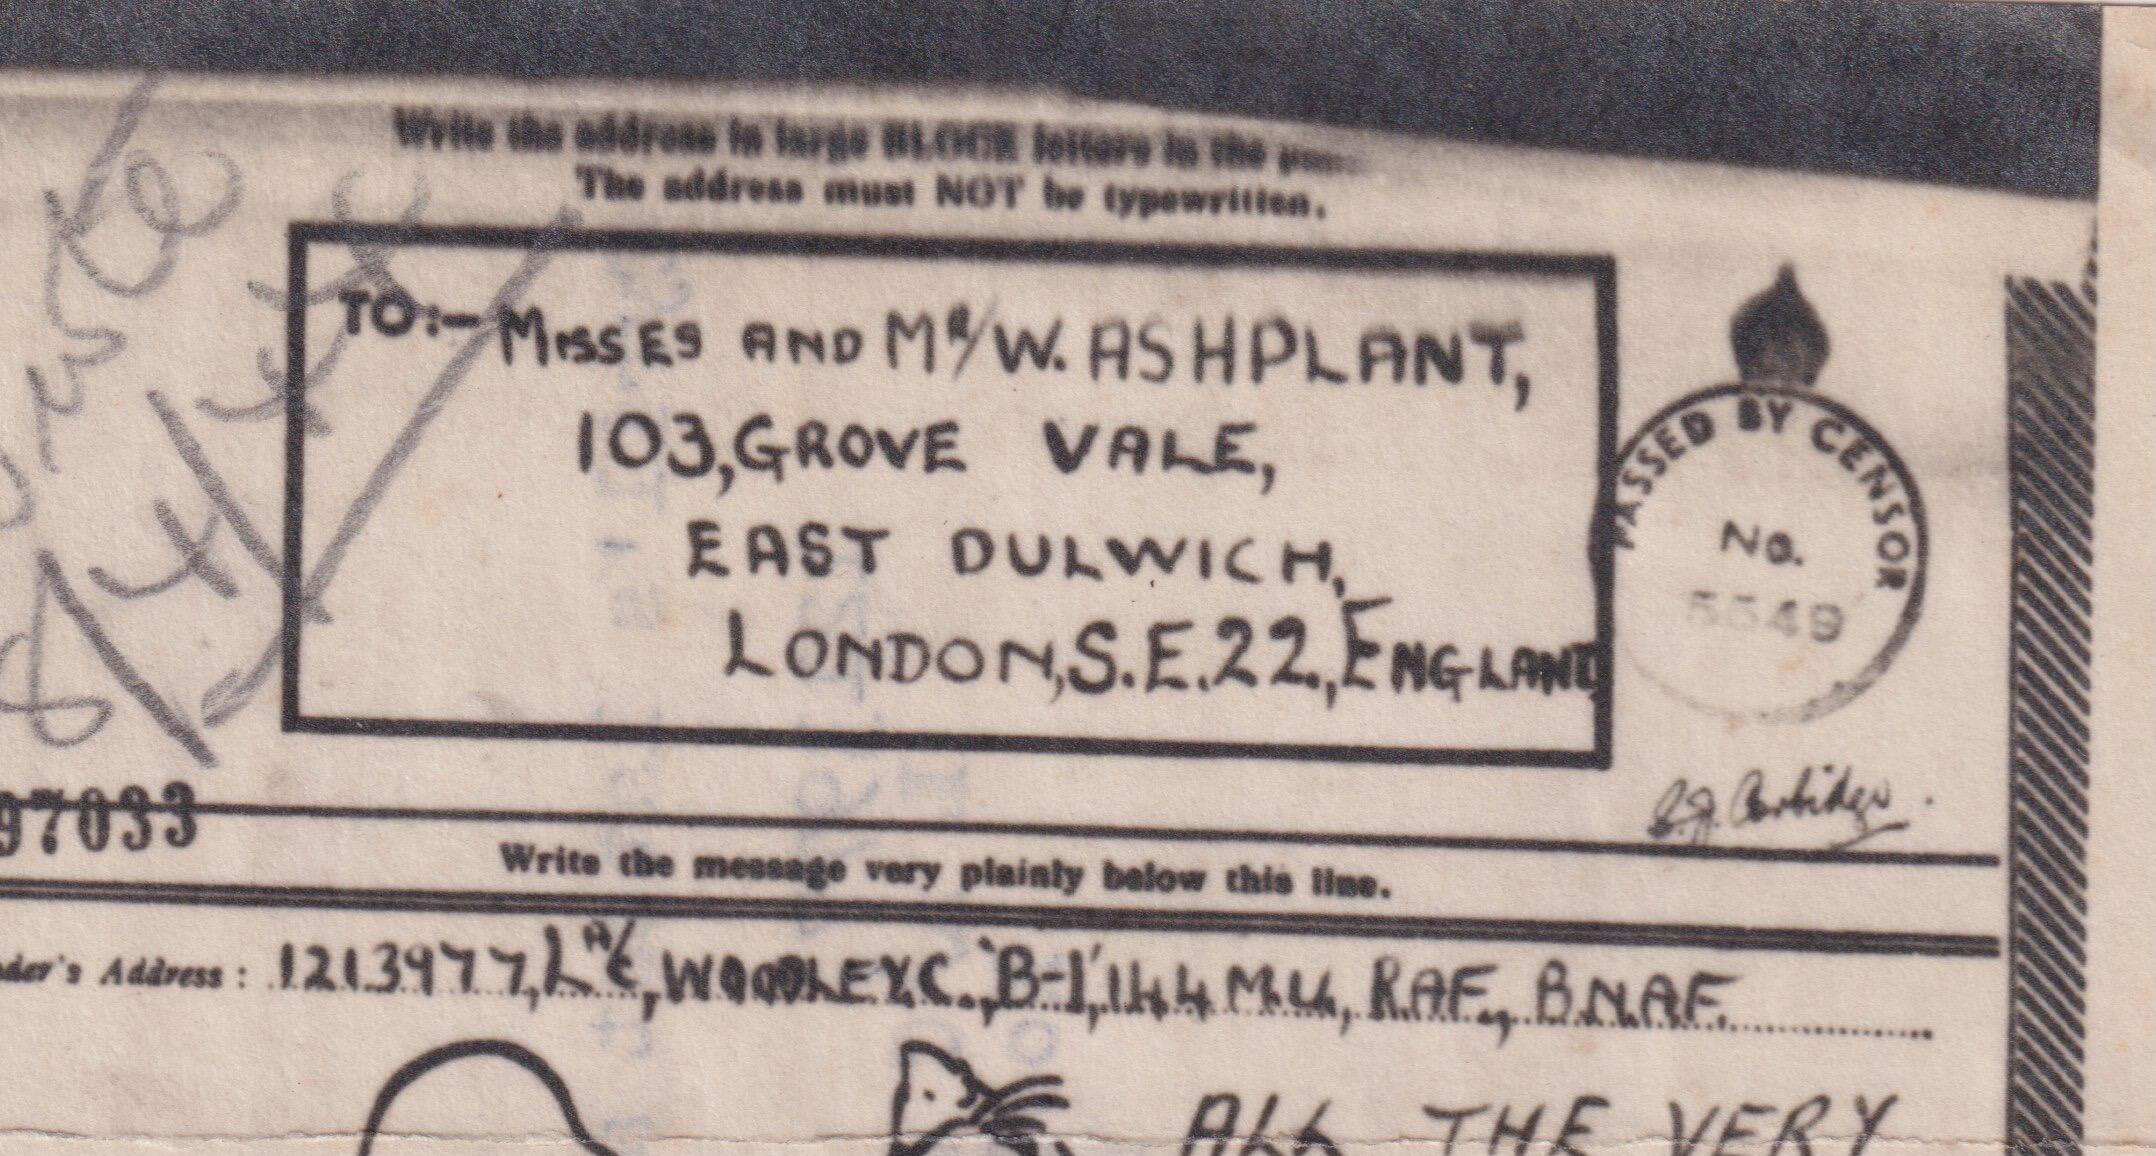 Write the address in large BLOCK letters in the
The address must NOT be typewritten.
TO:- MISSES AND MR/W. ASHPLANT,
103, GROVE VALE,
EAST DULWICH,
LONDON, S.E.22., ENGLAND
PASSED BY CENSOR
No.
5549
97033
Write the message very plainly below this line.
der's Address : 1213977, LA/C, WOODLEY.C., 'B-1', 144 M.U., RAF., B.N.A.F.
ALL THE VERY